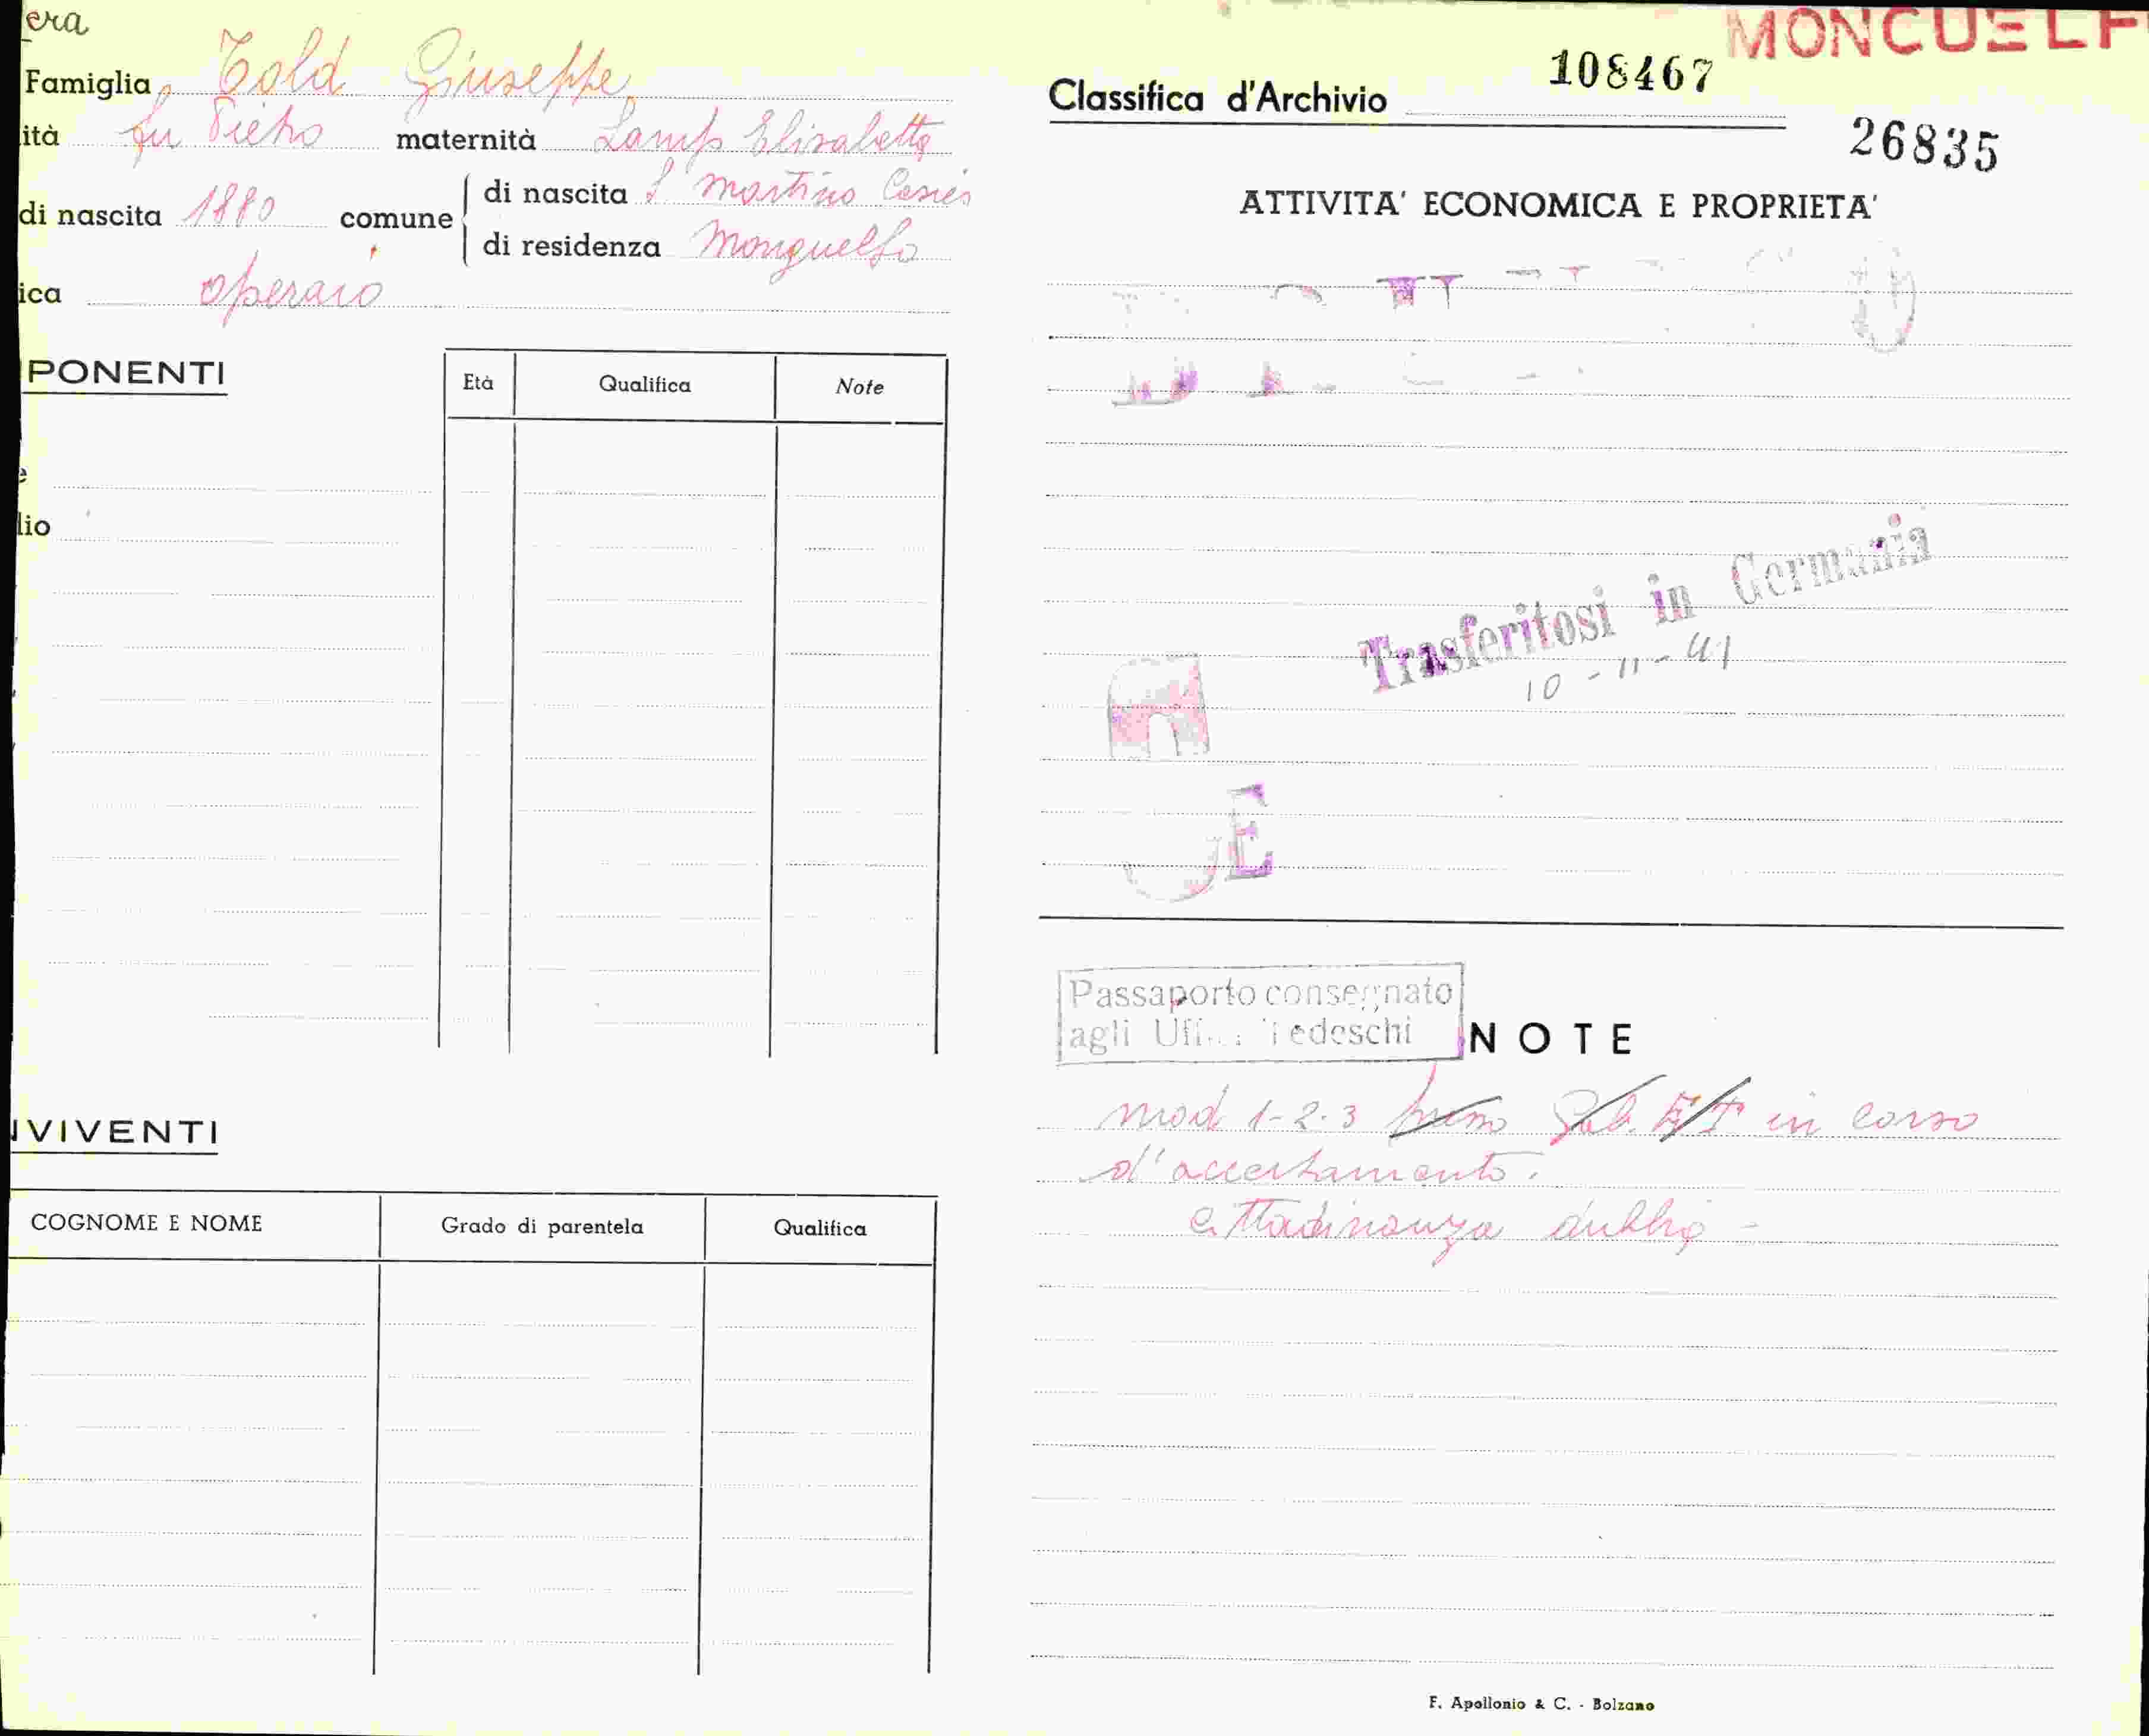 era
MONGUELF
Famiglia Told Giuseppe
ità fu Pietro maternità Lamp Elisabetta
di nascita 1880 comune di nascita S. Martino Casies
di residenza Monguelfo
ica operaio
PONENTI
Età Qualifica Note
e
lio
IVIVENTI
COGNOME E NOME Grado di parentela Qualifica
Classifica d'Archivio 108467
26835
ATTIVITA' ECONOMICA E PROPRIETA'
Trasferitosi in Germania
10-11-41
E
Passaporto consegnato
agli Tedeschi
NOTE
mod 1-2-3 in corso
d'accertamento.
cittadinanza dubbia -
F. Apollonio & C. - Bolzano